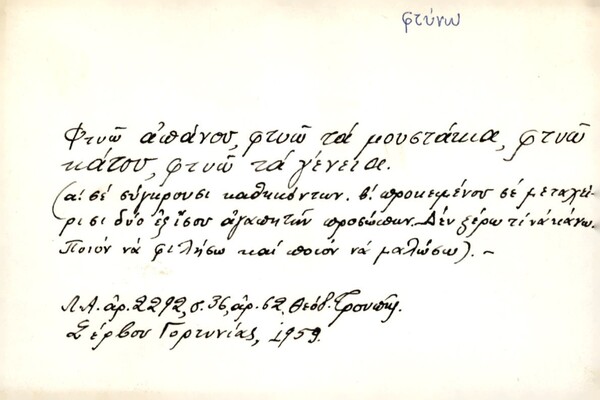 φτύνω
Φτυῶ ἀπάνου, φτυῶ τά μουστάκια, φτυῶ
κάτου, φτυῶ τά γένεια.
(α! σέ σύγκρουσι καθηκόντων. β! προκειμένου σέ μεταχεί
ρισι δύο ἐξ ἴσου ἀγαπητῶν προσώπων. Δέν ξέρω τί νά κάνω.
Ποιόν νά φιλήσω καί ποιόν νά μαλώσω). -
Λ.Α. ἀρ. 2292, σ. 36, ἀρ. 62, Θεόδ. Τρουπῆς.
Σέρβου Γορτυνίας, 1959.